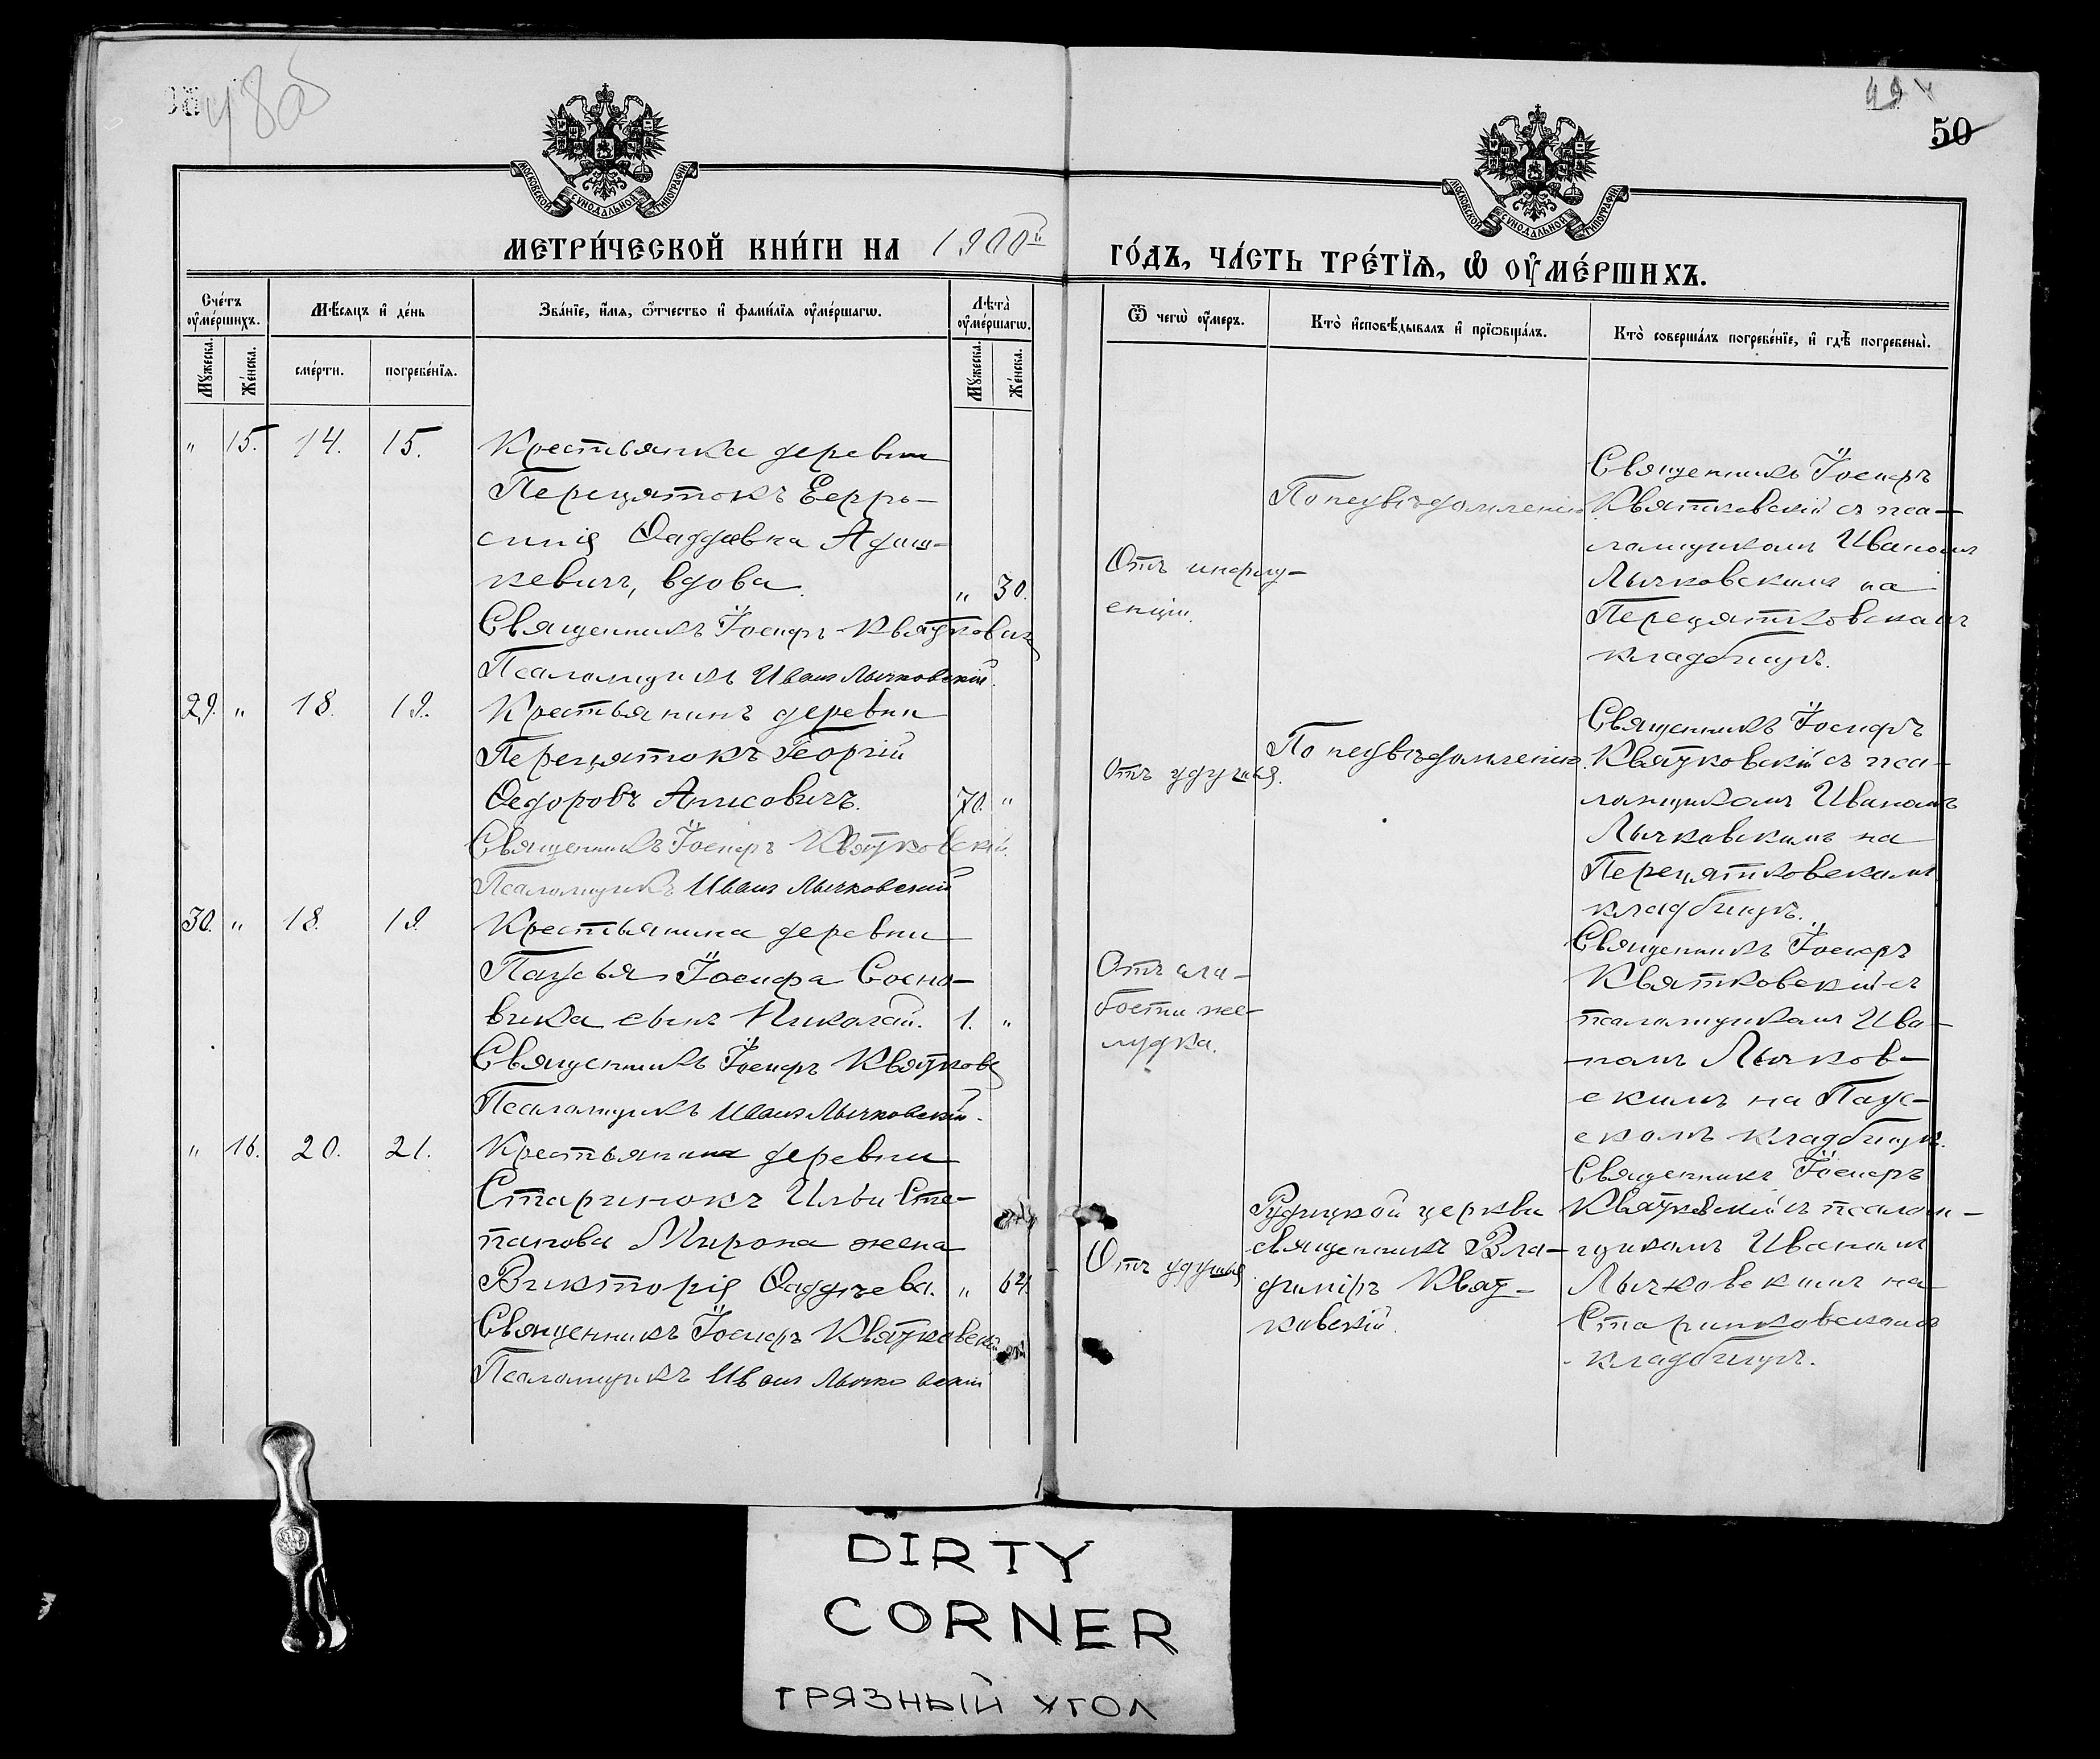 48об
49
50
МОСКОВСКОЙ СѴНОДАЛЬНОЙ ТИПОГРАФІИ
МОСКОВСКОЙ СѴНОДАЛЬНОЙ ТИПОГРАФІИ
МЕТРИ́ЧЕСКОЙ КНИ́ГИ НА 1900й
ГО́ДЪ, ЧА́СТЬ ТРЕ́ТІѦ, Ѡ҆ ОУ҆МЕ́РШИХЪ.
Сче́тъ оу҆ме́ршихъ.
Мꙋ́жеска.
Же́нска.
Мѣ́сяцъ и҆ де́нь
сме́рти.
погребе́нїя.
Зва́нїе, и҆́мя, ѻ҆́тчество и҆ фамилїя оу҆ме́ршагѡ.
Лѣта̀ оу҆ме́ршагѡ.
Мꙋ́жеска.
Же́нска.
Ѿ чегѡ̀ оу҆́меръ.
Кто̀ и҆сповѣ́дывалъ и҆ прїѡбща́лъ.
Кто̀ соверша́лъ погребе́нїе, и҆ гдѣ̀ погребены̀.
" 15. 14. 15.
Крестьянка деревни
Перецятокъ Евфро-
синія Ѳаддѣевна Адаш-
кевичъ, вдова. " 30.
Священникъ Іосифъ Квятковскій
Псаломщикъ Иванъ Лычковскій.
Отъ инфлу-
енціи.
По неувѣдомленію.
Священникъ Іосифъ
Квятковскій съ пса-
ломщикомъ Иваномъ
Лычковскимъ на
Перецятковскомъ
кладбищѣ.
29. " 18. 19.
Крестьянинъ деревни
Перецятокъ Георгій
Ѳедоровъ Анисовичъ. 70. "
Священникъ Іосифъ Квятковскій.
Псаломщикъ Иванъ Лычковскій
Отъ удушья.
По неувѣдомленію.
Священникъ Іосифъ
Квятковскій съ пса-
ломщикомъ Иваномъ
Лычковскимъ на
Перецятковскомъ
кладбищѣ.
30. " 18. 19.
Крестьянина деревни
Іосифа Сосно-
вика сынъ Николай. 1. "
Священникъ Іосифъ Квятковс
Псаломщикъ Иванъ Лычковскій.
Отъ сла-
бости же-
лудка.
Священникъ Іосифъ
Квятковскій съ
псаломщикомъ Ива-
номъ Лычков-
скимъ на
скомъ кладбищѣ.
" 16. 20. 21.
Крестьянина деревни
Старинокъ Ильи Сте-
панова Мирона жена
Викторія Ѳаддѣева. " 64.
Священникъ Іосифъ Квятковскій
Псаломщикъ Иванъ Лычковскій
Отъ удушья
Рудицкой церкви
священникъ Вла-
диміръ Квят-
ковскій.
Священникъ Іосифъ
Квятковскій съ псалом-
щикомъ Иваномъ
Лычковскимъ на
Старинковскомъ
кладбищѣ.
DIRTY
CORNER
ГРЯЗНЫЙ УГОЛ